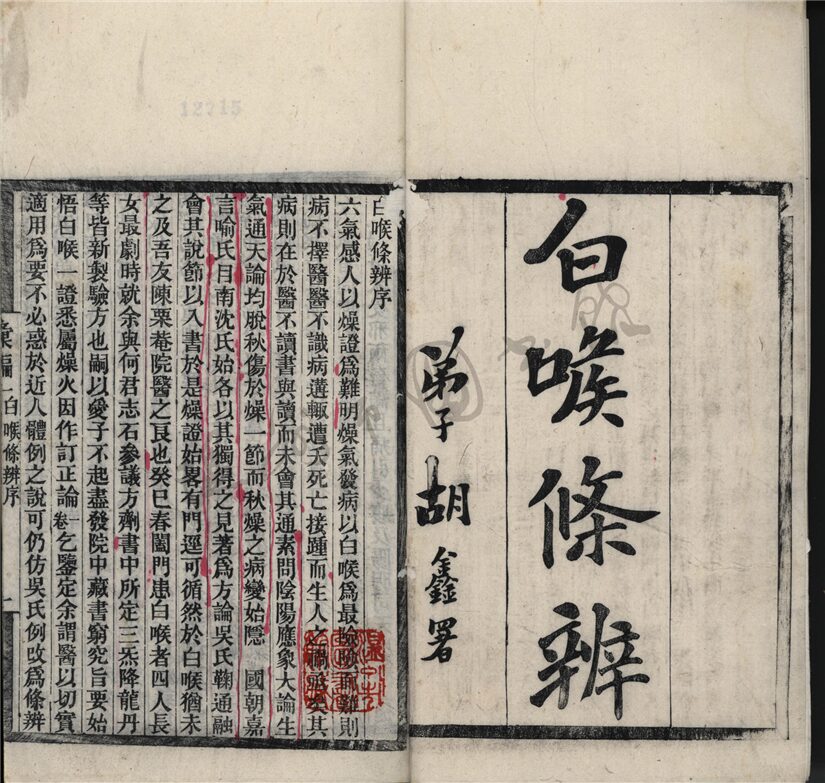 白喉條辨
弟子胡鑫署
白喉條辨序
六氣感人以燥證爲難明燥氣發病以白喉爲最險險而難則
病不擇醫醫不識病遘輒遭夭死亡接踵而生人之禍亟矣其
病則在於醫不讀書與讀而未會其通素問陰陽應象大論生
氣通天論均脫秋傷於燥一節而秋燥之病變始隱 國朝嘉
言喻氏目南沈氏始各以其獨得之見著爲方論吳氏鞠通融
會其說節以入書於是燥證始畧有門逕可循然於白喉猶未
之及吾友陳栗菴院醫之良也癸巳春闔門患白喉者四人長
女最劇時就余與何君志石參議方劑書中所定三炁降龍丹
等皆新製驗方也嗣以愛子不起盡發院中藏書窮究旨要始
悟白喉一證悉屬燥火因作訂正論一卷乞鑒定余謂醫以切實
適用爲要不必惑於近人體例之說可仍仿吳氏例改爲條辨
彙編一白喉條辨序
一
12715